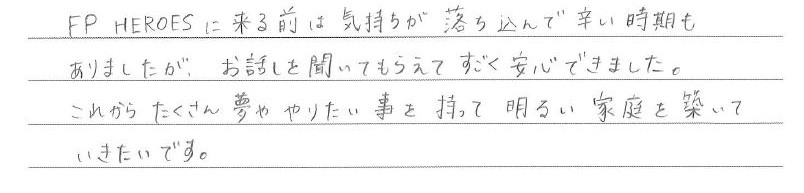 FP HEROESに来る前は気持ちが落ち込んで辛い時期も
ありましたが、お話しを聞いてもらえてすごく安心できました。
これからたくさん夢ややりたい事を持って明るい家庭を築いて
いきたいです。